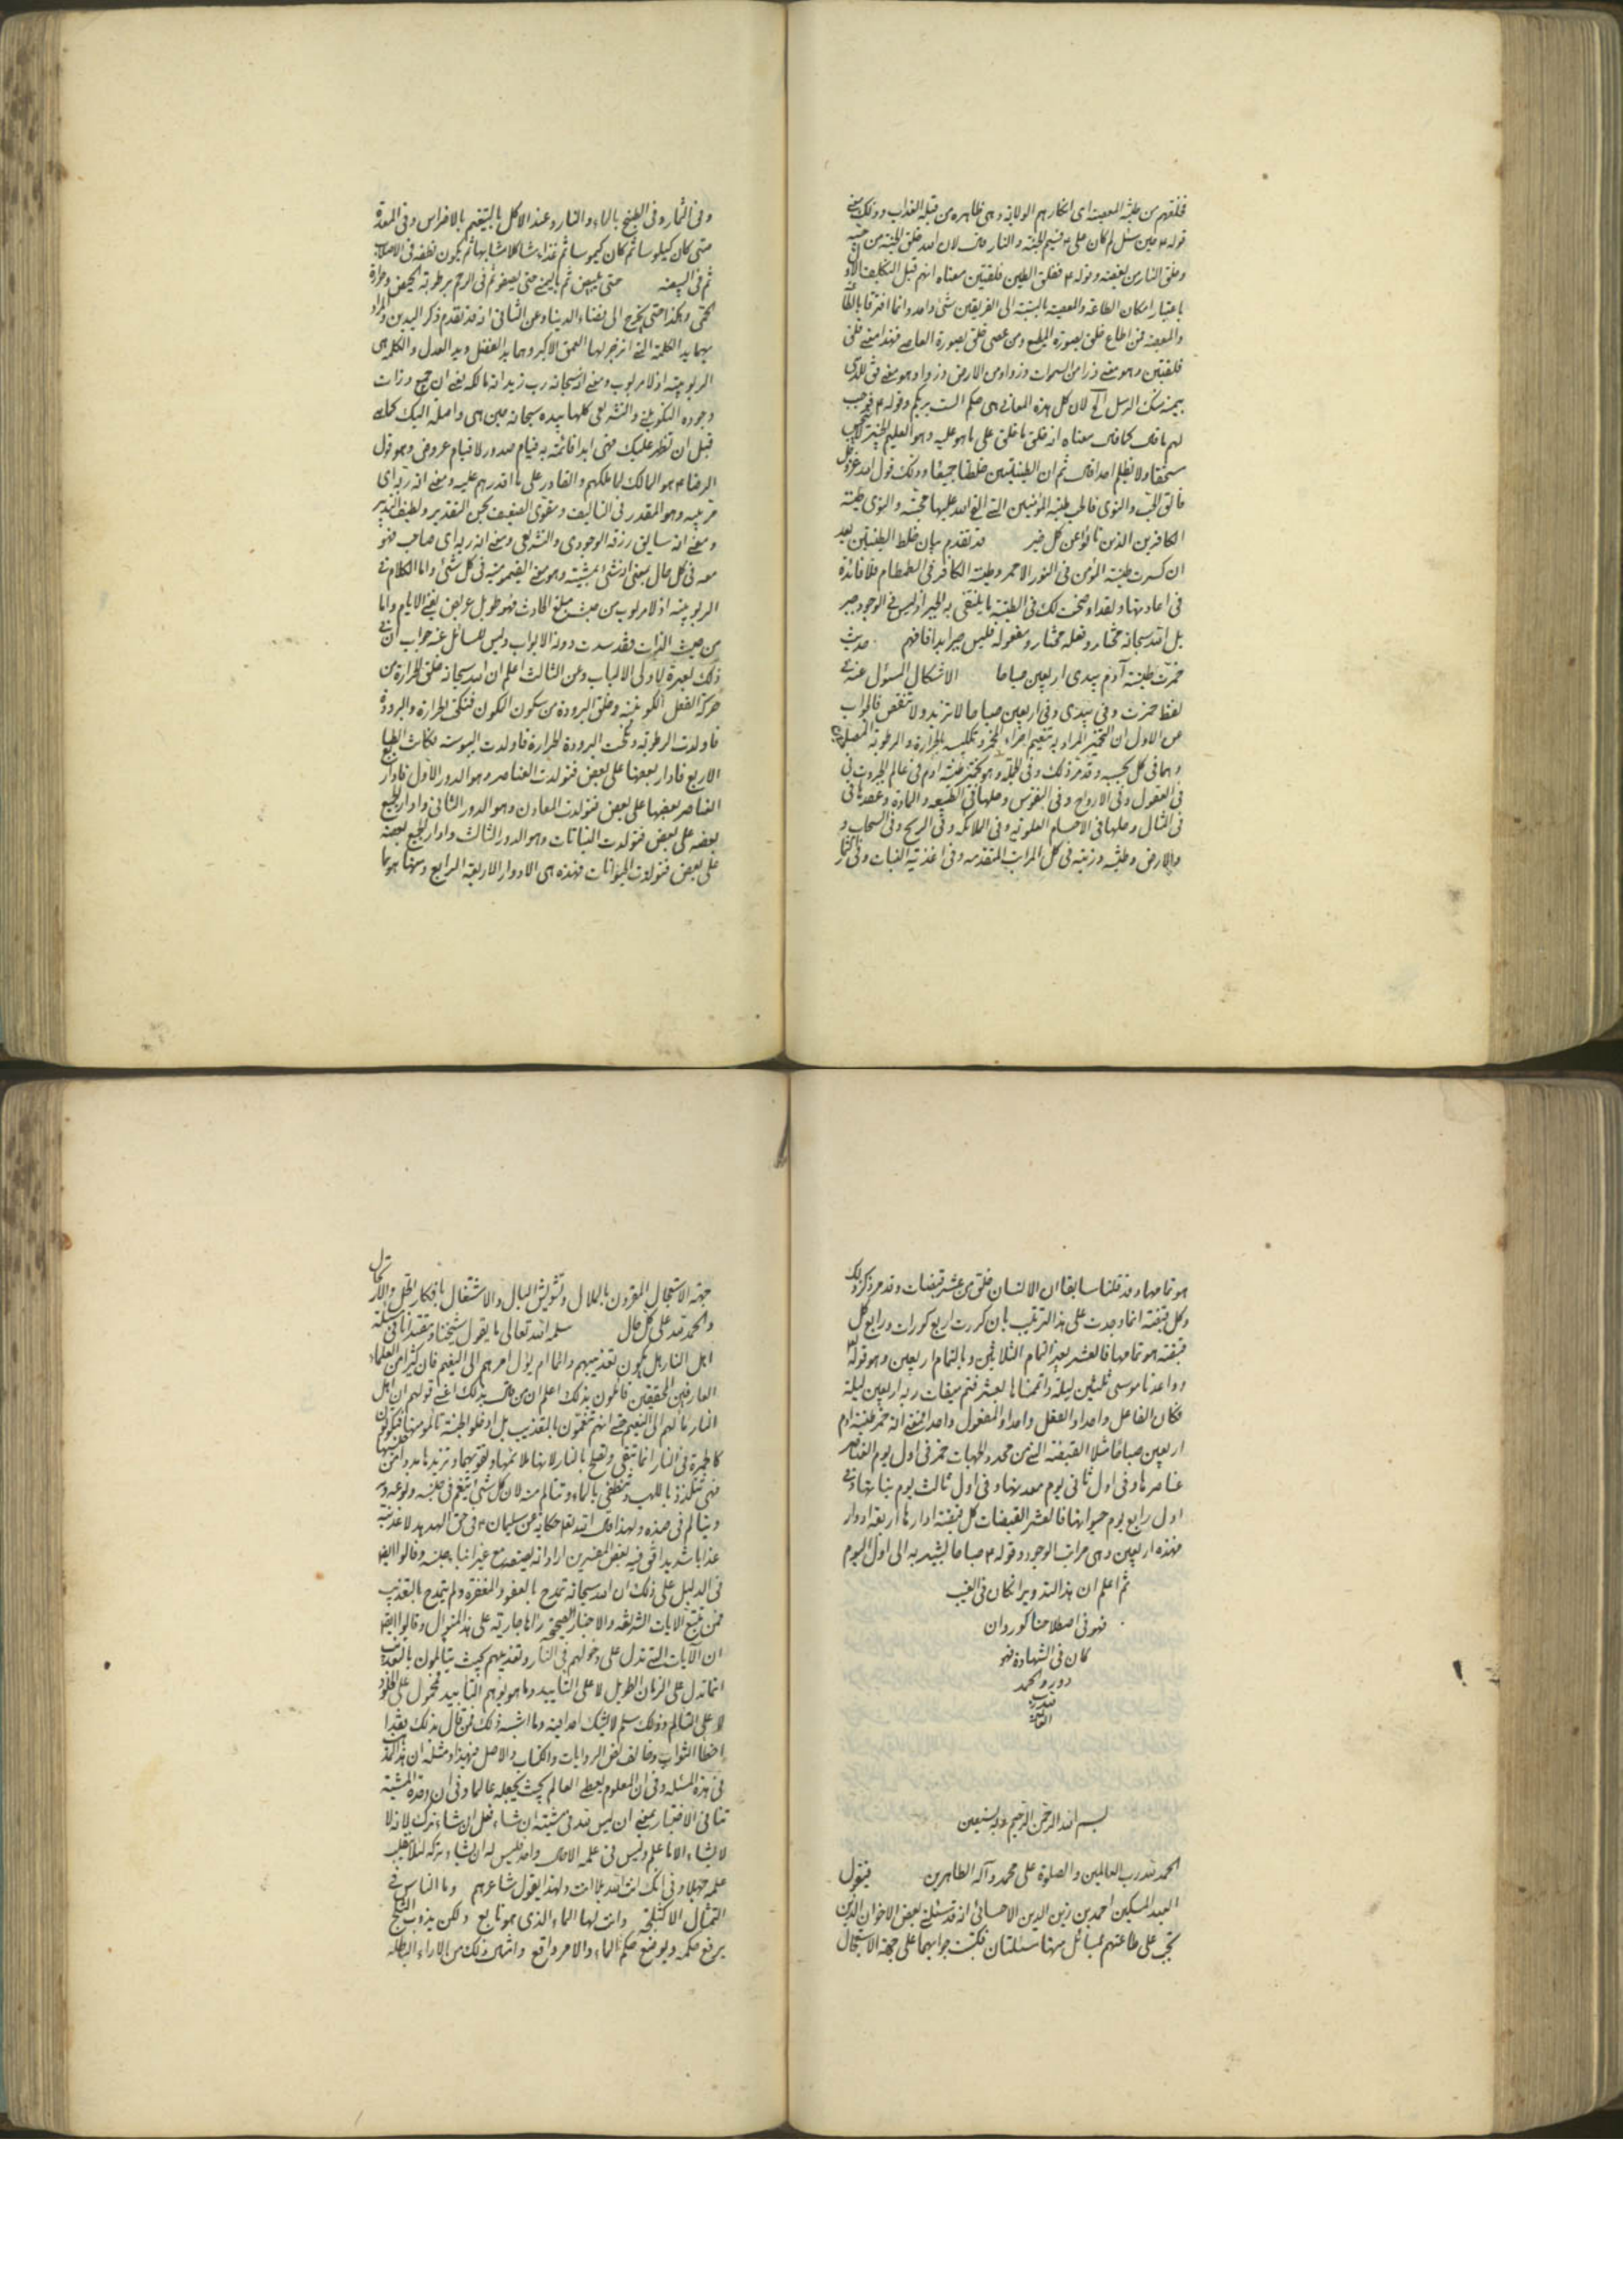 فخلقهم من طينة المعصية اى انكارهم الولاية وهى ظاهره من قبله العذاب وذلك معنى
قوله ع حين سئل لم كان على ع قسيم الجنة والنار قال لان الله خلق الجنة من حبه
وخلق النار من بغضه وقوله ع ففلق الطين فلقتين معناه انهم قبل التكليف الاول
باعتبار امكان الطاعة والمعصية بالنسبة الى الفريقين شئ واحد وانما افترقا بالطاعة
والمعصية فمن اطاع خلق بصورة المطيع ومن عصى خلق بصورة العاصى فهذا معنى فلق
فلقتين وهو معنى ذرا من السموات ذروا ومن الارض ذروا وهو معنى
بيمينه منك الرسل الخ لان كل هذه المعانى هى حكم الست بربكم وقوله ع فوجب
لهم ما قال كما قال معناه انه خلق ما خلق على ما هو عليه وهو العليم الخبير
ولا يظلم احدا قال ثم ان الطينتين خلطتا جميعا وذلك قول الله عز وجل
فالق الحب والنوى فالحب طينة المؤمنين التى القى الله عليها محبته والنوى طينة
الكافرين الذين نأوا عن كل خير قد تقدم بيان خلط الطينتين بعد
ان كسرت طينة المؤمن فى النور الاحمر وطينة الكافر فى الطمطام فلا فائدة
فى اعادتها ولقد اوضحت لك فى الطينة ما ينتفى به الجبر اذ ليس فى الوجود جبر
بل الله سبحانه مختار وفعله مختار ومفعوله فليس جبر ابدا فافهم حديث
خمرت طينة آدم بيدى اربعين صباحا الاشكال المسؤل عنه فى
لفظ خمرت وفى بيدى وفى اربعين صباحا لا تزيد ولا تنقص فالجواب
عن الاول ان التخمير المراد به تنعيم اجزاء المخمر وتكليسه بالحرارة والرطوبة
وهما فى كل بحسبه وقد مر ذلك وفى الجملة وهو تخمير طينة ادم فى عالم الجبروت فى
فى العقول وفى الارواح وفى النفوس وحلها فى الطبيعه والمادة وعقدها فى
فى المثال وحلها فى الاجسام العلوية وفى الملائكه وفى الريح وفى السحاب و
والارض وطينه وزينه فى كل المراتب المتقدمه وفى اغذية النبات وفى
وفى الثمار وفى الطبخ بالماء والنار وعند الاكل بالتنعيم بالاضراس وفى المعدة
حتى كان كيلوسا ثم كان كيموسا ثم غذاء مشاكلا مشابها ثم يكون نطفه فى الاصلاب
ثم فى البيضه حتى يبيض ثم باليمنى حتى يصفو ثم فى الرحم برطوبة الحيض وحرارة
الحمى وهكذا حتى يخرج الى فضاء الدنيا وعن الثانى انه قد تقدم ذكر اليدين والمراد
بهما يد الكلمة التى انزجر لها العمق الاكبر وهما يد الفضل ويد العدل والكلمة هى
الربوبية اذ لا مربوب ومعنى انه سبحانه رب زيد انه مالكه يعنى ان جميع ذرات
وجوده التكوينى والتشريعى كلها بيده سبحانه حين هى واصلة اليك كحالها
قبل ان تظهر عليك فهى ابدا قائمة به قيام صدور لا قيام عروض وهو قول
الرضا ع هو المالك لما ملكهم والقادر على ما اقدرهم عليه ومعنى انه ربه اى
مربيه وهو المقدر فى التاليف ومقوى الضعيف بحسن التقدير ولطيف التدبير
ومعنى انه سايق رزقه الوجودى والتشريعى ومعنى انه ربه اى صاحب فهو
معه فى كل حال
الربوبية اذ لا مربوب من حيث مبلغ الحادث فهو طويل عريض يفنى الايام واما
من حيث الذات فقد سدت دونه الابواب وليس للسائل عنه جواب ان فى
ذلك لعبرة لاولى الالباب وعن الثالث اعلم ان الله سبحانه خلق الحرارة من
حركة الفعل الكونية وخلق البرودة من سكون الكون فنكحت الحرارة والبرودة
فاولدت الرطوبة ونكحت البرودة الحرارة فاولدت اليبوسة فكانت الطبايع
الاربع فادار بعضها على بعض فتولدت العناصر وهو الدور الاول فادار
العناصر بعضها على بعض فتولدت المعادن وهو الدور الثانى وادار الجميع
بعضه على بعض فتولدت النباتات وهو الدور الثالث وادار الجميع بعضه
على بعض فتولدت الحيوانات فهذه هى الادوار الاربعة الرابع ومنها هو بها
هو تمامها وقد قلنا سابقا ان الانسان خلق من عشر قبضات وقد مر ذكر ذلك
وكل قبضة انما وجدت على هذا الترتيب بان كررت اربع كورات ورابع كل
قبضة هو تمامها فالعشر بغير التمام الثلاثين وبالتمام اربعين وهو قوله تعالى
وواعدنا موسى ثلثين ليلة واتممناها بعشر فتم ميقات ربه اربعين ليلة
فكان الفاعل واحدا والفعل واحدا والمفعول واحدا فمعنى انه خمر طينة ادم
اربعين صباحا مثلا القبضة التى من محدد الجهات خمر فى اول يوم العناصر
عناصرها وفى اول ثانى يوم معدنها وفى اول ثالث يوم نباتها وفى
اول رابع يوم حيوانها فالعشر القبضات كل قبضة ادارها اربعة ادوار
فهذه اربعين وهى مراتب الوجود وقوله ع صباحا يشير به الى اول اليوم
ثم اعلم ان هذا التدوير ان كان فى الغيب
فهو فى اصطلاحنا كور وان
كان فى الشهادة فهو
دور والحمد
لله رب
العالمين
بسم الله الرحمن الرحيم وبه نستعين
الحمد لله رب العالمين والصلوة على محمد وآله الطاهرين فيقول
العبد المسكين احمد بن زين الدين الاحسائى انه قد سئلنى بعض الاخوان الذين
تجب على طاعتهم بمسائل منها مسئلتان فكتبت جوابهما على جهة الاستعجال
جهة الاستعجال المقرون بالملال وتشويش البال والاشتغال بافكار الحل والارتحال
والحمد لله على كل حال سلمه الله تعالى ما يقول شيخنا ومقتدانا فى مسئلة
اهل النار هل يكون تعذيبهم دائما ام يؤل امرهم الى النعيم فان كثيرا من العلماء
العارفين المحققين قائلون بذلك اعلم ان من قال بذلك اعنى قولهم ان اهل
النار مآلهم الى النعيم حتى انهم يتنعمون بالتعذيب بل لو دخلوا الجنة تألموا منها فيكونون
كالجمرة فى النار انما تبقى وتصلح بالنار لانها تلائمها وتقويها وتزيدها مددا من جنسها
فهى تتلذذ باللهب وتنطفى بالماء وتتالم منه لان كل شئ يتنعم فى جنسه ونوعه
ويتالم فى ضده ولهذا قال الله تعالى حكاية عن سليمان ع فى حق الهدهد لاعذبنه
عذابا شديدا قال فيه بعض المفسرين اراد انه يضعه مع غير ابناء جنسه وقالوا ايضا
فى الدليل على ذلك ان الله سبحانه تمدح بالعفو والمغفرة ولم يتمدح بالتعذيب
فمن تتبع الايات الشريفه والاخبار الصحيحة راها جارية على هذا المنوال وقالوا ايضا
ان الآيات التى تدل على دخولهم فى النار وتعذيبهم بحيث يتالمون بالتعذيب
انما تدل على الزمان الطويل لا على التابيد وما هو يوهم التابيد محمول على الخلود
لا على التالم وذلك مسلم لا يشك احد فيه وما اشبه ذلك فمن قال بذلك فقد
اخطا الثواب وخالف نص الروايات والكتاب والاصل فى هذا ومثله ان
فى هذه المسئله وفى ان المعلوم يعطى العالم بحيث يجعله عالما وفى ان وحدة المشية
تنافى الاختيار بمعنى ان ليس لله فى مشيته ان شاء فعل وان شاء ترك لانه لا
لا يشاء الا ما علم وليس فى علمه الا حال واحد فليس له ان يشاء تركه لئلا ينقلب
علمه جهلا وفى انك انت الله بلا انت ولهذا يقول شاعرهم وما الناس فى
التمثال الا كثلجة وانت لها الماء الذى هو تابع ولكن بذوب الثلج
يرفع حكمه ويوضع حكم الماء والامر واقع وامثال ذلك من الاراء الباطلة